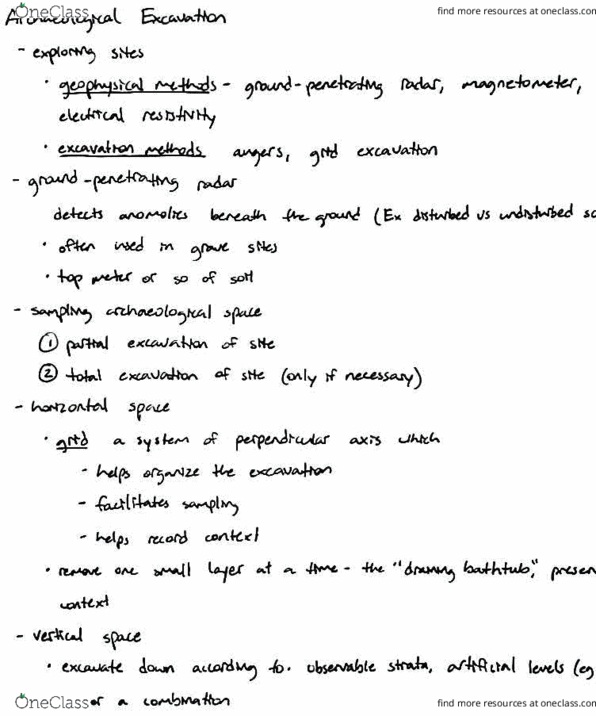 OneClass find more resources at oneclass.com
Archaeological Excavation
- exploring sites
• geophysical methods - ground-penetrating radar, magnetometer,
electrical resistivity
• excavation methods augers, grid excavation
- ground-penetrating radar
detects anomolies beneath the ground (Ex disturbed vs undisturbed so
• often used in grave sites
• top meter or so of soil
- sampling archaeological space
① partial excavation of site
② total excavation of site (only if necessary)
- horizontal space
• grid a system of perpendicular axis which
- helps organize the excavation
- facilitates sampling
- helps record context
• remove one small layer at a time - the "draining bathtub", presen
context
- vertical space
• excavate down according to. observable strata, artificial levels (eg
or a combination
OneClass find more resources at oneclass.com